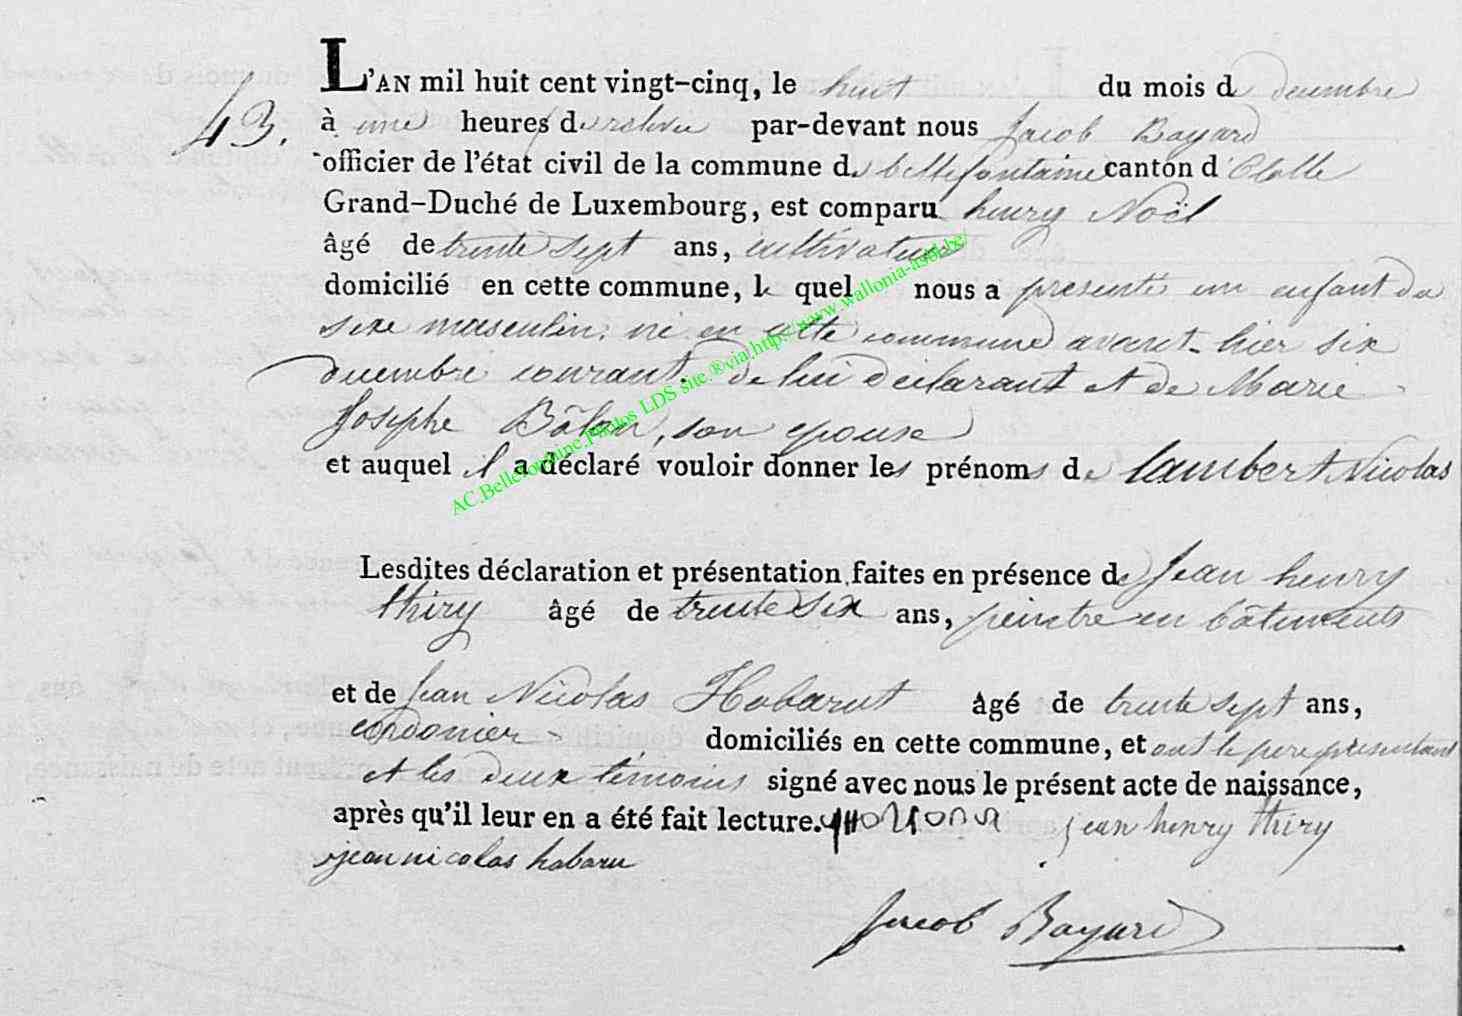 L'AN mil huit cent vingt-cinq, le huit du mois de decembre
43.
à une heures de relevée par-devant nous Jacob Bayard
officier de l'état civil de la commune de bellefontaine canton d'Etalle
Grand-Duché de Luxembourg, est comparu henry Noël
âgé de trente sept ans, cultivateur
domicilié en cette commune, le quel nous a presenté un enfant du
sexe masculin, né en cette commune avant-hier six
decembre courant, de lui declarant et de Marie
Josephe son epouse
et auquel il a déclaré vouloir donner les prénoms de lambert Nicolas
Lesdites déclaration et présentation faites en présence de Jean henry
thiry âgé de trente six ans, peintre en bâtiments
et de Jean Nicolas Habarut âgé de trente sept ans,
cordonier domiciliés en cette commune, et ont le pere presentant
et les deux témoins signé avec nous le présent acte de naissance,
après qu'il leur en a été fait lecture. jean henry thiry
jean nicolas habaru
Jacob Bayard
AC.Bellefontaine.Photos LDS site ®via.http://www.wallonia-asbl.be/